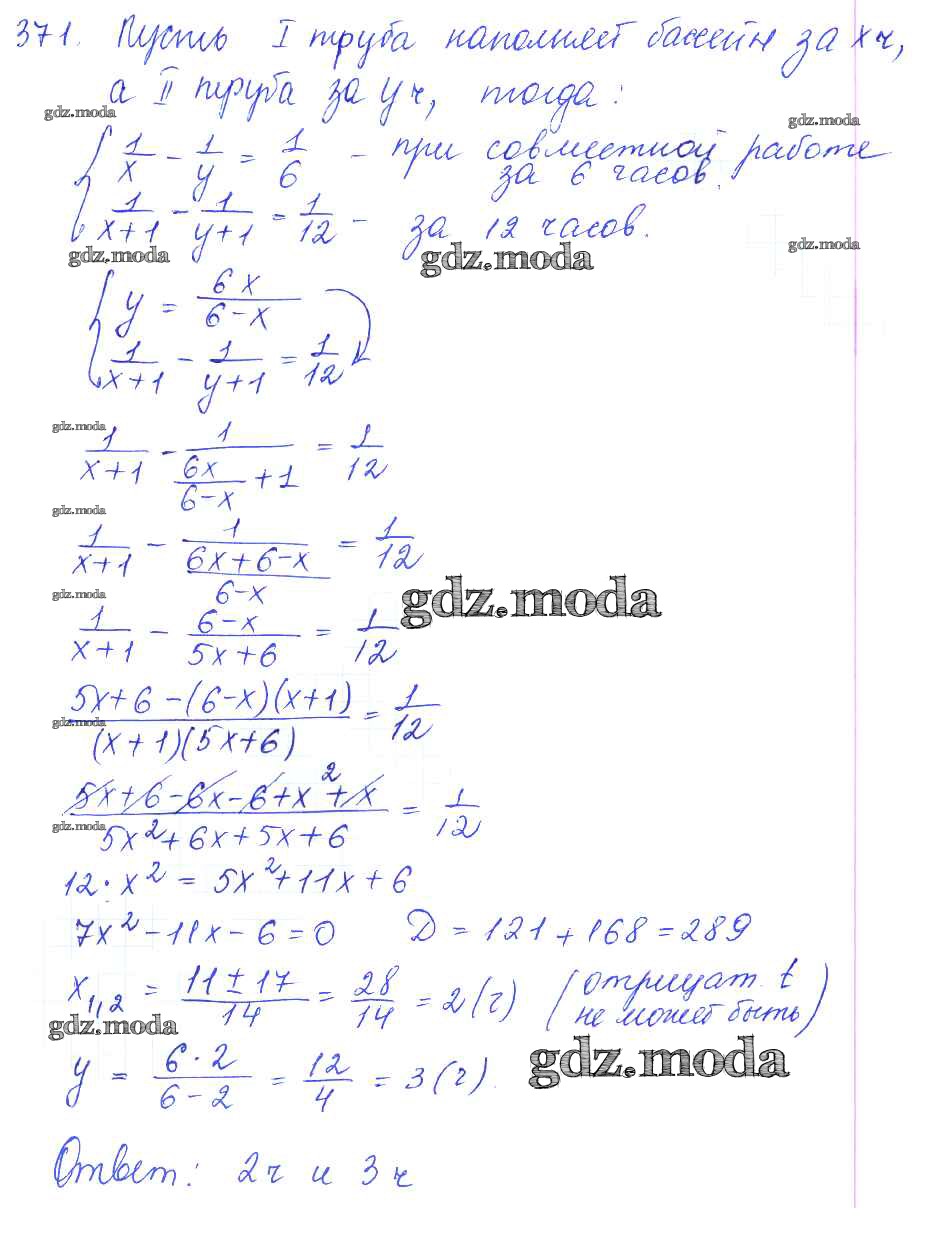 371. Пусть I труба наполняет бассейн за x ч,
а II труба за y ч, тогда:
gdz.moda
gdz.moda
{ 1/x - 1/y = 1/6 - при совместной работе
за 6 часов.
1/(x+1) - 1/(y+1) = 1/12 - за 12 часов.
gdz.moda
gdz.moda
gdz.moda
{ y = 6x/(6-x)
1/(x+1) - 1/(y+1) = 1/12
gdz.moda
1/(x+1) - 1/(6x/(6-x) + 1) = 1/12
gdz.moda
1/(x+1) - 1/((6x+6-x)/(6-x)) = 1/12
gdz.moda
gdz.moda
1/(x+1) - (6-x)/(5x+6) = 1/12
(5x+6-(6-x)(x+1))/((x+1)(5x+6)) = 1/12
gdz.moda
(5x+6-6x-6+x²+x)/(5x²+6x+5x+6) = 1/12
gdz.moda
12·x² = 5x²+11x+6
7x²-11x-6=0 D = 121+168=289
x₁,₂ = (11±17)/14 = 28/14 = 2(ч) (отрицат. t
не может быть)
gdz.moda
gdz.moda
y = (6·2)/(6-2) = 12/4 = 3(ч).
Ответ: 2ч и 3ч